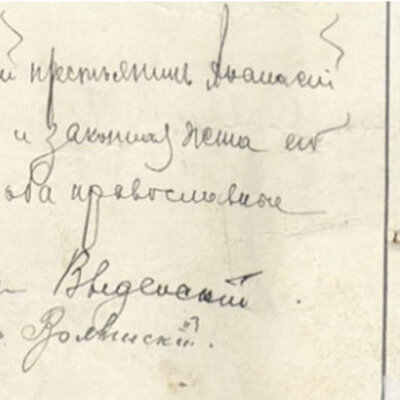 й крестьянинъ Афанасій
и законная жена его
оба православные
Введенскій
Волынскій.